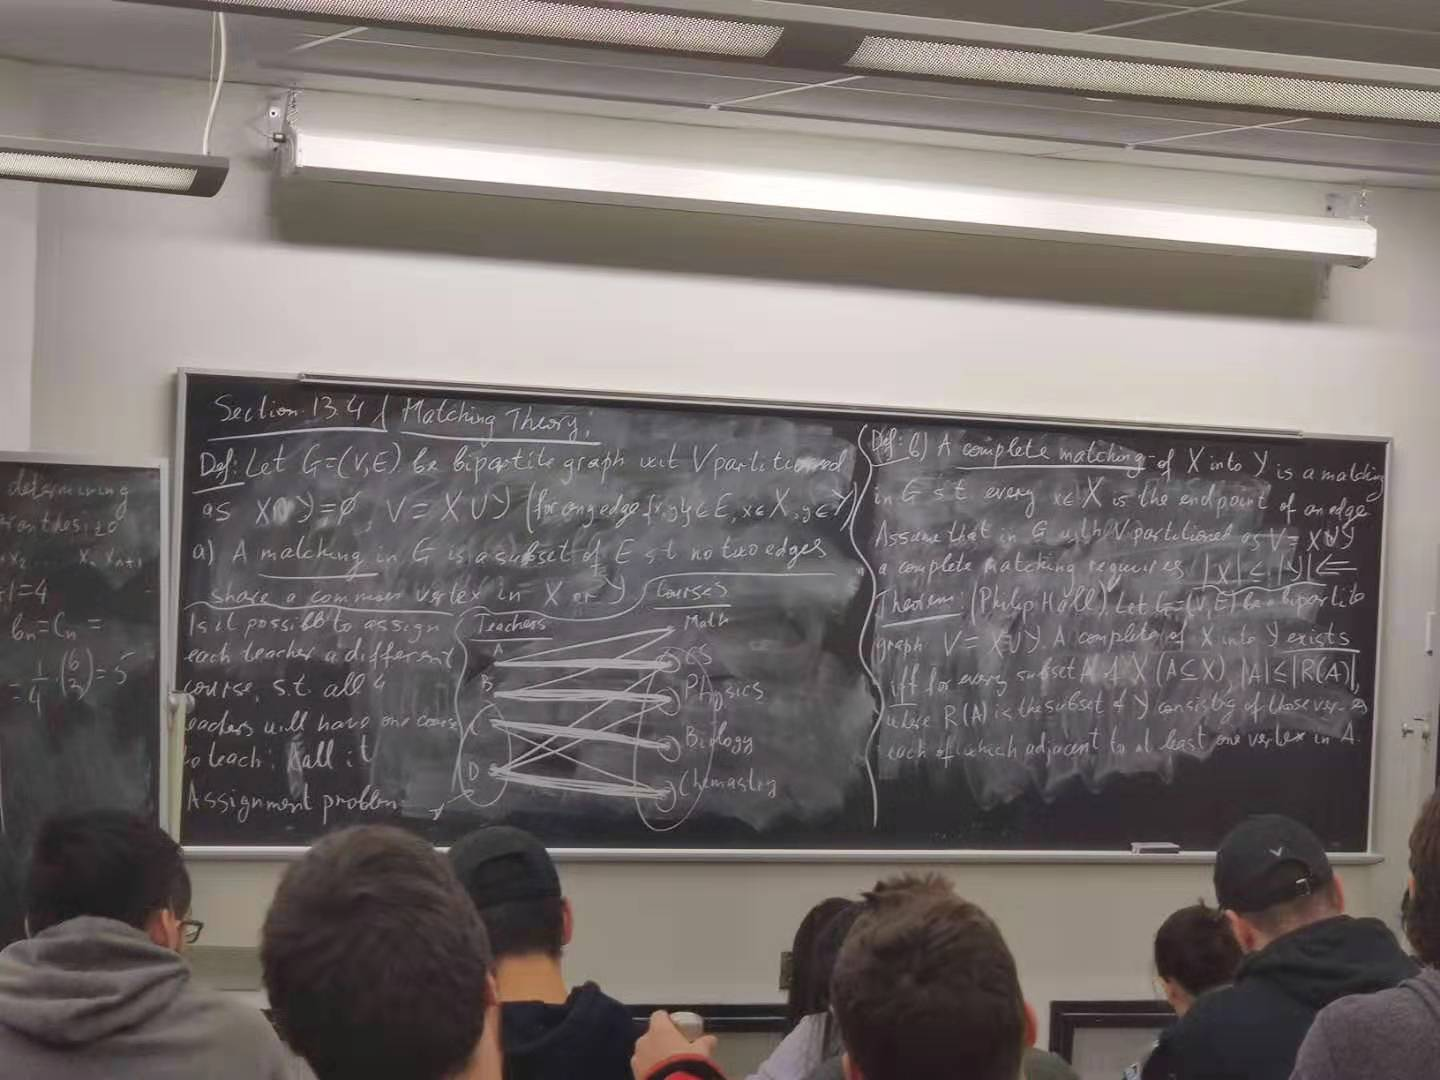 determining
x₂ ... xₙ xₙ₊₁
=4
bₙ = Cₙ =
= 1/4 (6 3) = 5
Section 13.4 / Matching Theory:
Def: Let G=(V,E) be bipartite graph wit V partitioned
as X∩Y=∅, V = X∪Y (for any edge {x,y}∈E, x∈X, y∈Y)
a) A matching in G is a subset of E s.t no two edges
share a common vertex in X or Y
Is it possible to assign
each teacher a different
course, s.t. all 4
teachers will have one course
to teach: Call it
Assignment problem
Teachers
A
B
C
D
Courses
Math
CS
Physics
Biology
Chemastry
Def: b) A complete matching of X into Y is a matching
in G s.t. every x∈X is the endpoint of an edge
Assume that in G with V partitioned as V = X∪Y
a complete matching requires |X| ≤ |Y| ⇐
Theorem: (Philip Hall) Let G=(V,E) be a bipartite
graph V = X∪Y. A complete of X into Y exists
iff for every subset A of X (A⊆X), |A| ≤ |R(A)|,
where R(A) is the subset of Y consisting of those
each of which adjacent to at least one vertex in A.